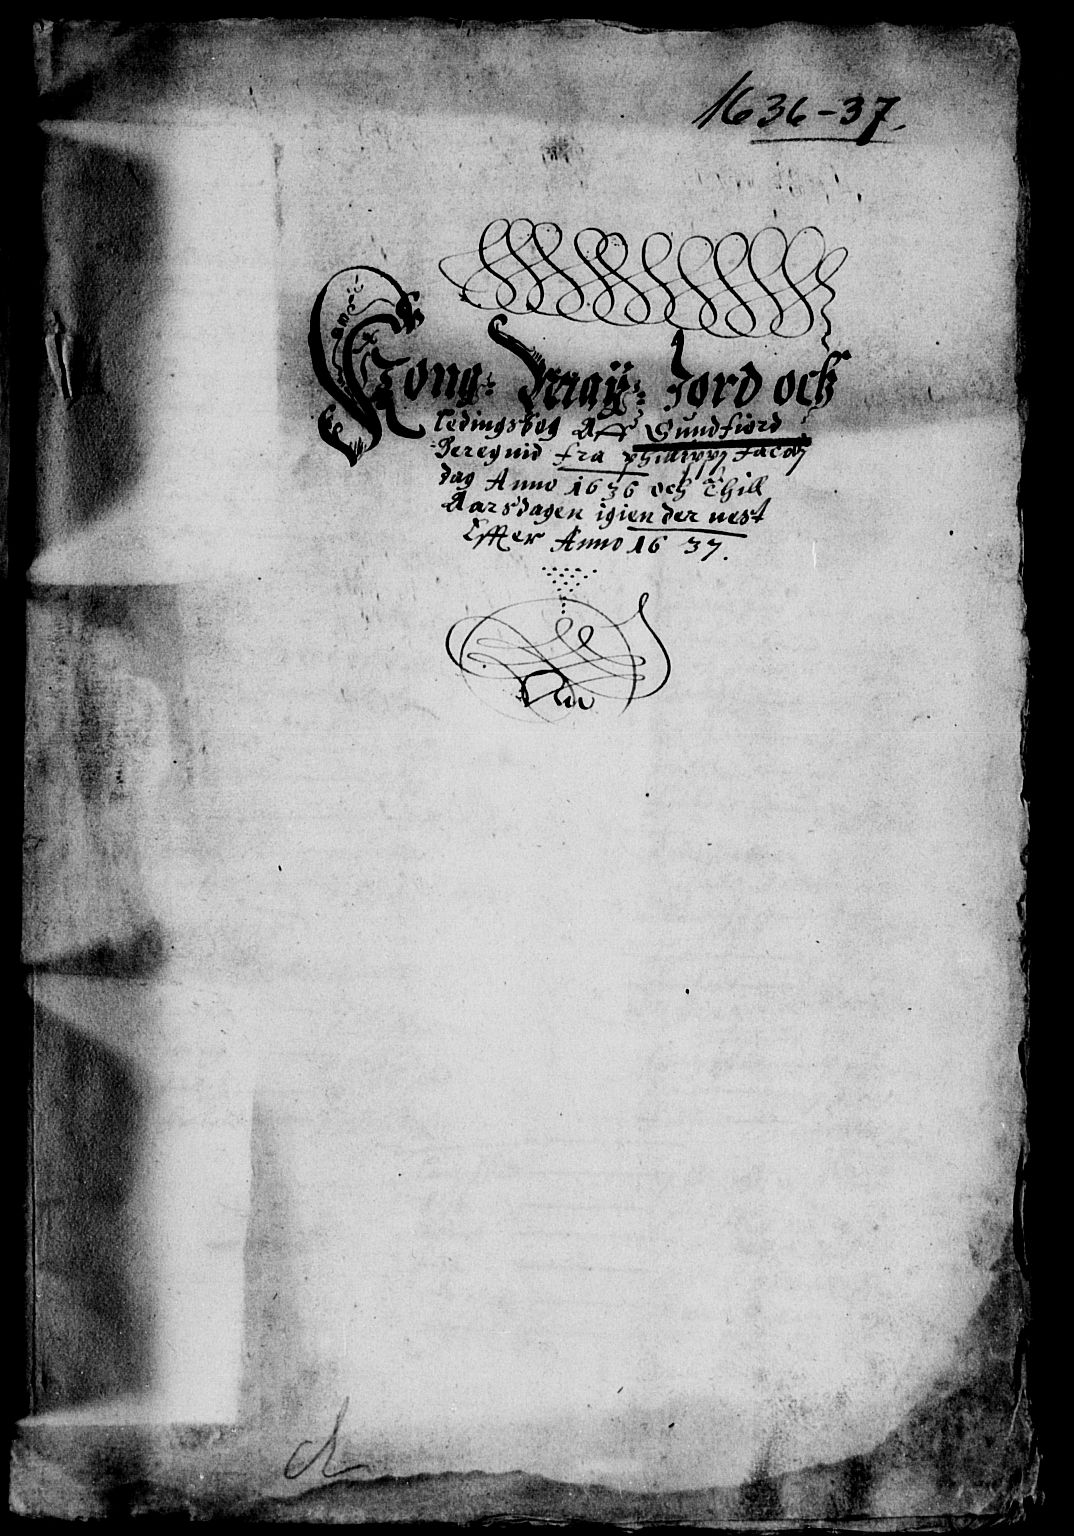 1636-37.
Kong: May: Jord och
Ledingsbog Aff Sundfiord
Beregnid fra philippj Jacobj
dag Anno 1636 och Thill
Aarsdagen igien der nest
Effter Anno 1637.